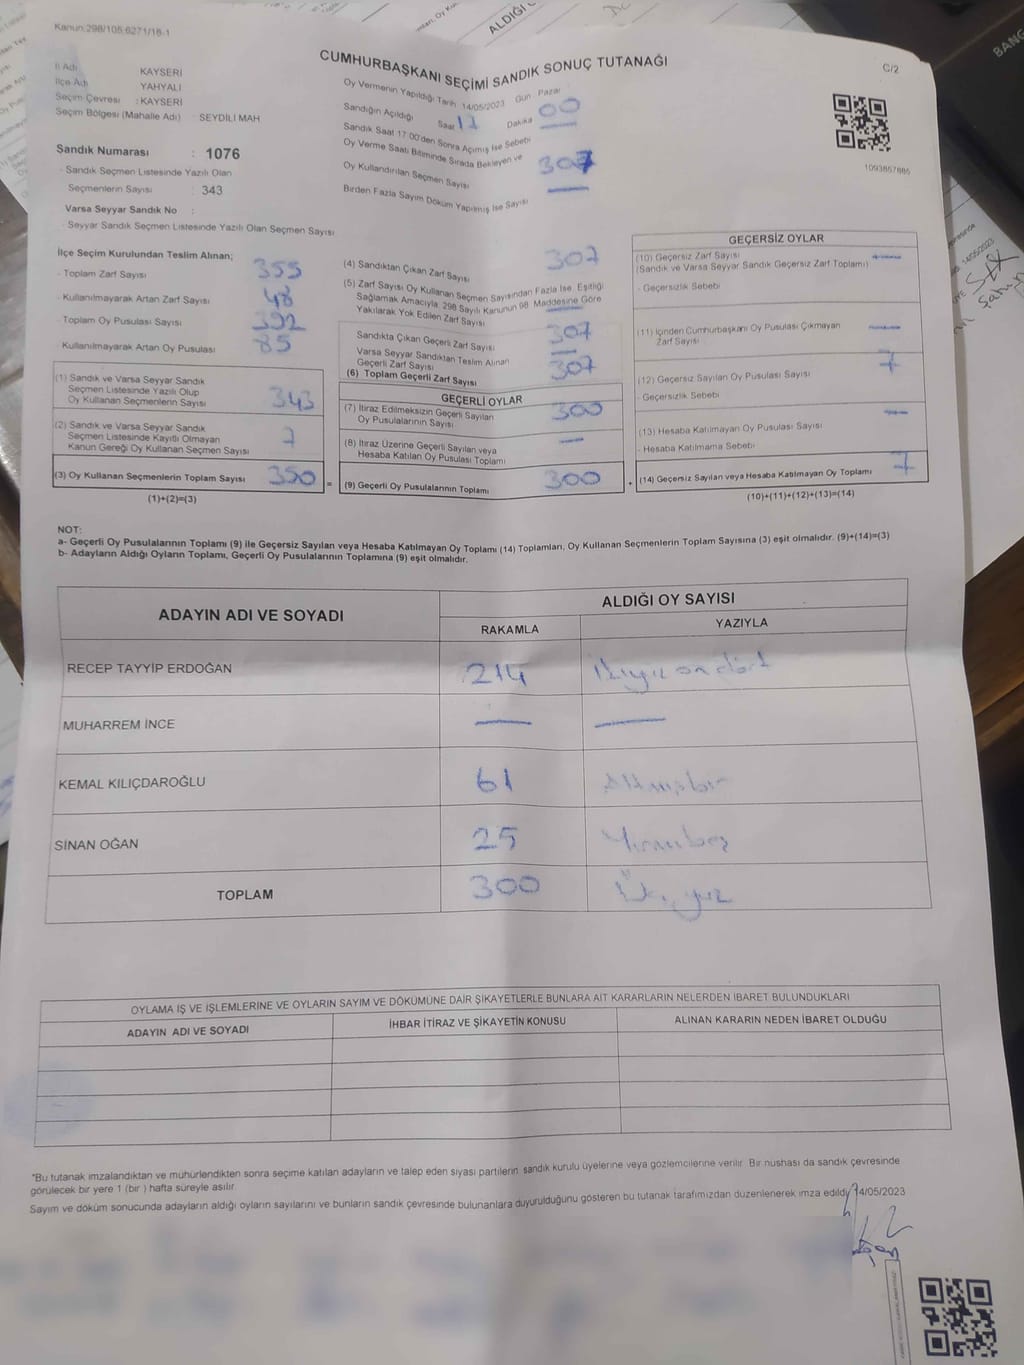 Kanun:298/105;6271/18-1
CUMHURBAŞKANI SEÇİMİ SANDIK SONUÇ TUTANAĞI
C/2
İl Adı KAYSERİ
İlçe Adı YAHYALI
Seçim Çevresi : KAYSERİ
Seçim Bölgesi (Mahalle Adı) : SEYDİLİ MAH
Sandık Numarası : 1076
- Sandık Seçmen Listesinde Yazılı Olan
Seçmenlerin Sayısı : 343
Varsa Seyyar Sandık No :
- Seyyar Sandık Seçmen Listesinde Yazılı Olan Seçmen Sayısı
Oy Vermenin Yapıldığı Tarih 14/05/2023 Gün Pazar
Sandığın Açıldığı Saat 17 Dakika 00
Sandık Saat 17:00'den Sonra Açımış İse Sebebi
Oy Verme Saati Bitiminde Sırada Bekleyen ve
Oy Kullandırılan Seçmen Sayısı 307
Birden Fazla Sayım Döküm Yapılmış İse Sayısı —
1093857885
İlçe Seçim Kurulundan Teslim Alınan;
- Toplam Zarf Sayısı 355
- Kullanılmayarak Artan Zarf Sayısı 48
- Toplam Oy Pusulası Sayısı 392
- Kullanılmayarak Artan Oy Pusulası 85
(1) Sandık ve Varsa Seyyar Sandık
Seçmen Listesinde Yazılı Olup
Oy Kullanan Seçmenlerin Sayısı 343
(2) Sandık ve Varsa Seyyar Sandık
Seçmen Listesinde Kayıtlı Olmayan
Kanun Gereği Oy Kullanan Seçmen Sayısı 7
(3) Oy Kullanan Seçmenlerin Toplam Sayısı 350 =
(1)+(2)=(3)
(4) Sandıktan Çıkan Zarf Sayısı 307
(5) Zarf Sayısı Oy Kullanan Seçmen Sayısından Fazla İse, Eşitliği
Sağlamak Amacıyla, 298 Sayılı Kanunun 98. Maddesine Göre
Yakılarak Yok Edilen Zarf Sayısı —
Sandıkta Çıkan Geçerli Zarf Sayısı 307
Varsa Seyyar Sandıktan Teslim Alınan
Geçerli Zarf Sayısı —
(6) Toplam Geçerli Zarf Sayısı 307
GEÇERLİ OYLAR
(7) İtiraz Edilmeksizin Geçerli Sayılan
Oy Pusulalarının Sayısı 300
(8) İtiraz Üzerine Geçerli Sayılan veya
Hesaba Katılan Oy Pusulası Toplamı —
(9) Geçerli Oy Pusulalarının Toplamı 300 +
GEÇERSİZ OYLAR
(10) Geçersiz Zarf Sayısı —
(Sandık ve Varsa Seyyar Sandık Geçersiz Zarf Toplamı)
- Geçersizlik Sebebi
(11) İçinden Cumhurbaşkanı Oy Pusulası Çıkmayan
Zarf Sayısı —
(12) Geçersiz Sayılan Oy Pusulası Sayısı 7
- Geçersizlik Sebebi
(13) Hesaba Katılmayan Oy Pusulası Sayısı —
- Hesaba Katılmama Sebebi
(14) Geçersiz Sayılan veya Hesaba Katılmayan Oy Toplamı 7
(10)+(11)+(12)+(13)=(14)
NOT:
a- Geçerli Oy Pusulalarının Toplamı (9) ile Geçersiz Sayılan veya Hesaba Katılmayan Oy Toplamı (14) Toplamları, Oy Kullanan Seçmenlerin Toplam Sayısına (3) eşit olmalıdır. (9)+(14)=(3)
b- Adayların Aldığı Oyların Toplamı, Geçerli Oy Pusulalarının Toplamına (9) eşit olmalıdır.
ADAYIN ADI VE SOYADI ALDIĞI OY SAYISI
RAKAMLA YAZIYLA
RECEP TAYYİP ERDOĞAN 214 İkiyüz on dört
MUHARREM İNCE — —
KEMAL KILIÇDAROĞLU 61 Altmışbir
SİNAN OĞAN 25 Yirmibeş
TOPLAM 300 Üçyüz
OYLAMA İŞ VE İŞLEMLERİNE VE OYLARIN SAYIM VE DÖKÜMÜNE DAİR ŞİKAYETLERLE BUNLARA AİT KARARLARIN NELERDEN İBARET BULUNDUKLARI
ADAYIN ADI VE SOYADI İHBAR İTİRAZ VE ŞİKAYETİN KONUSU ALINAN KARARIN NEDEN İBARET OLDUĞU
*Bu tutanak imzalandıktan ve mühürlendikten sonra seçime katılan adayların ve talep eden siyasi partilerin sandık kurulu üyelerine veya gözlemcilerine verilir. Bir nüshası da sandık çevresinde
görülecek bir yere 1 (bir ) hafta süreyle asılır.
Sayım ve döküm sonucunda adayların aldığı oyların sayılarını ve bunların sandık çevresinde bulunanlara duyurulduğunu gösteren bu tutanak tarafımızdan düzenlenerek imza edildi 14/05/2023